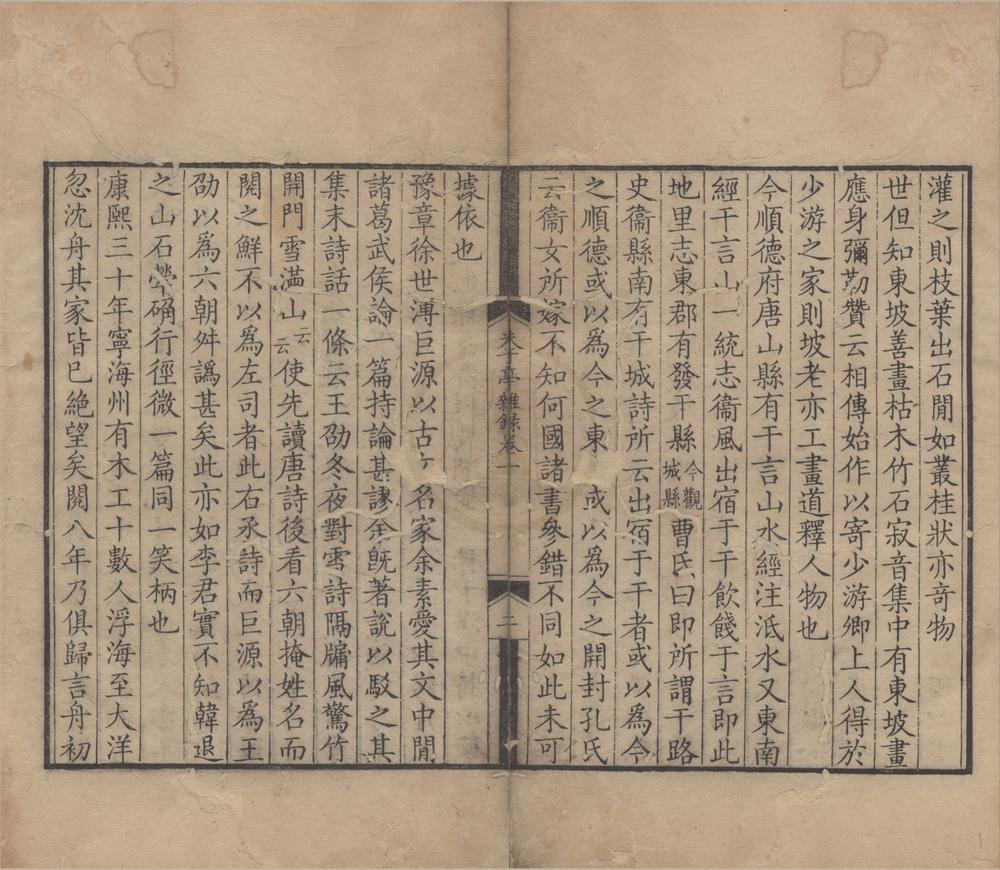 灌之則枝葉出石閒如叢桂狀亦奇物
世但知東坡善畫枯木竹石寂音集中有東坡畫
應身彌勒贊云相傳始作以寄少游卿上人得於
少游之家則坡老亦工畫道釋人物也
今順德府唐山縣有干言山水經注泜水又東南
經干言山一統志衞風出宿于干飲餞于言即此
地里志東郡有發干縣今觀城縣曹氏曰即所謂干路
史衞縣南有干城詩所云出宿于干者或以爲今
之順德或以爲今之東 或以爲今之開封孔氏
云衞女所嫁不知何國諸書參錯不同如此未可
亭雜錄卷一
二
據依也
豫章徐世溥巨源以古 名家余素愛其文中閒
諸葛武侯論一篇持論甚謬余旣著說以駁之其
集末詩話一條云王劭冬夜對雪詩隔牖風驚竹
開門雪滿山云云使先讀唐詩後看六朝掩姓名而
閱之鮮不以爲左司者此右丞詩而巨源以爲王
劭以爲六朝舛譌甚矣此亦如李君實不知韓退
之山石犖确行徑微一篇同一笑柄也
康熙三十年寧海州有木工十數人浮海至大洋
忽沈舟其家皆已絶望矣閱八年乃俱歸言舟初